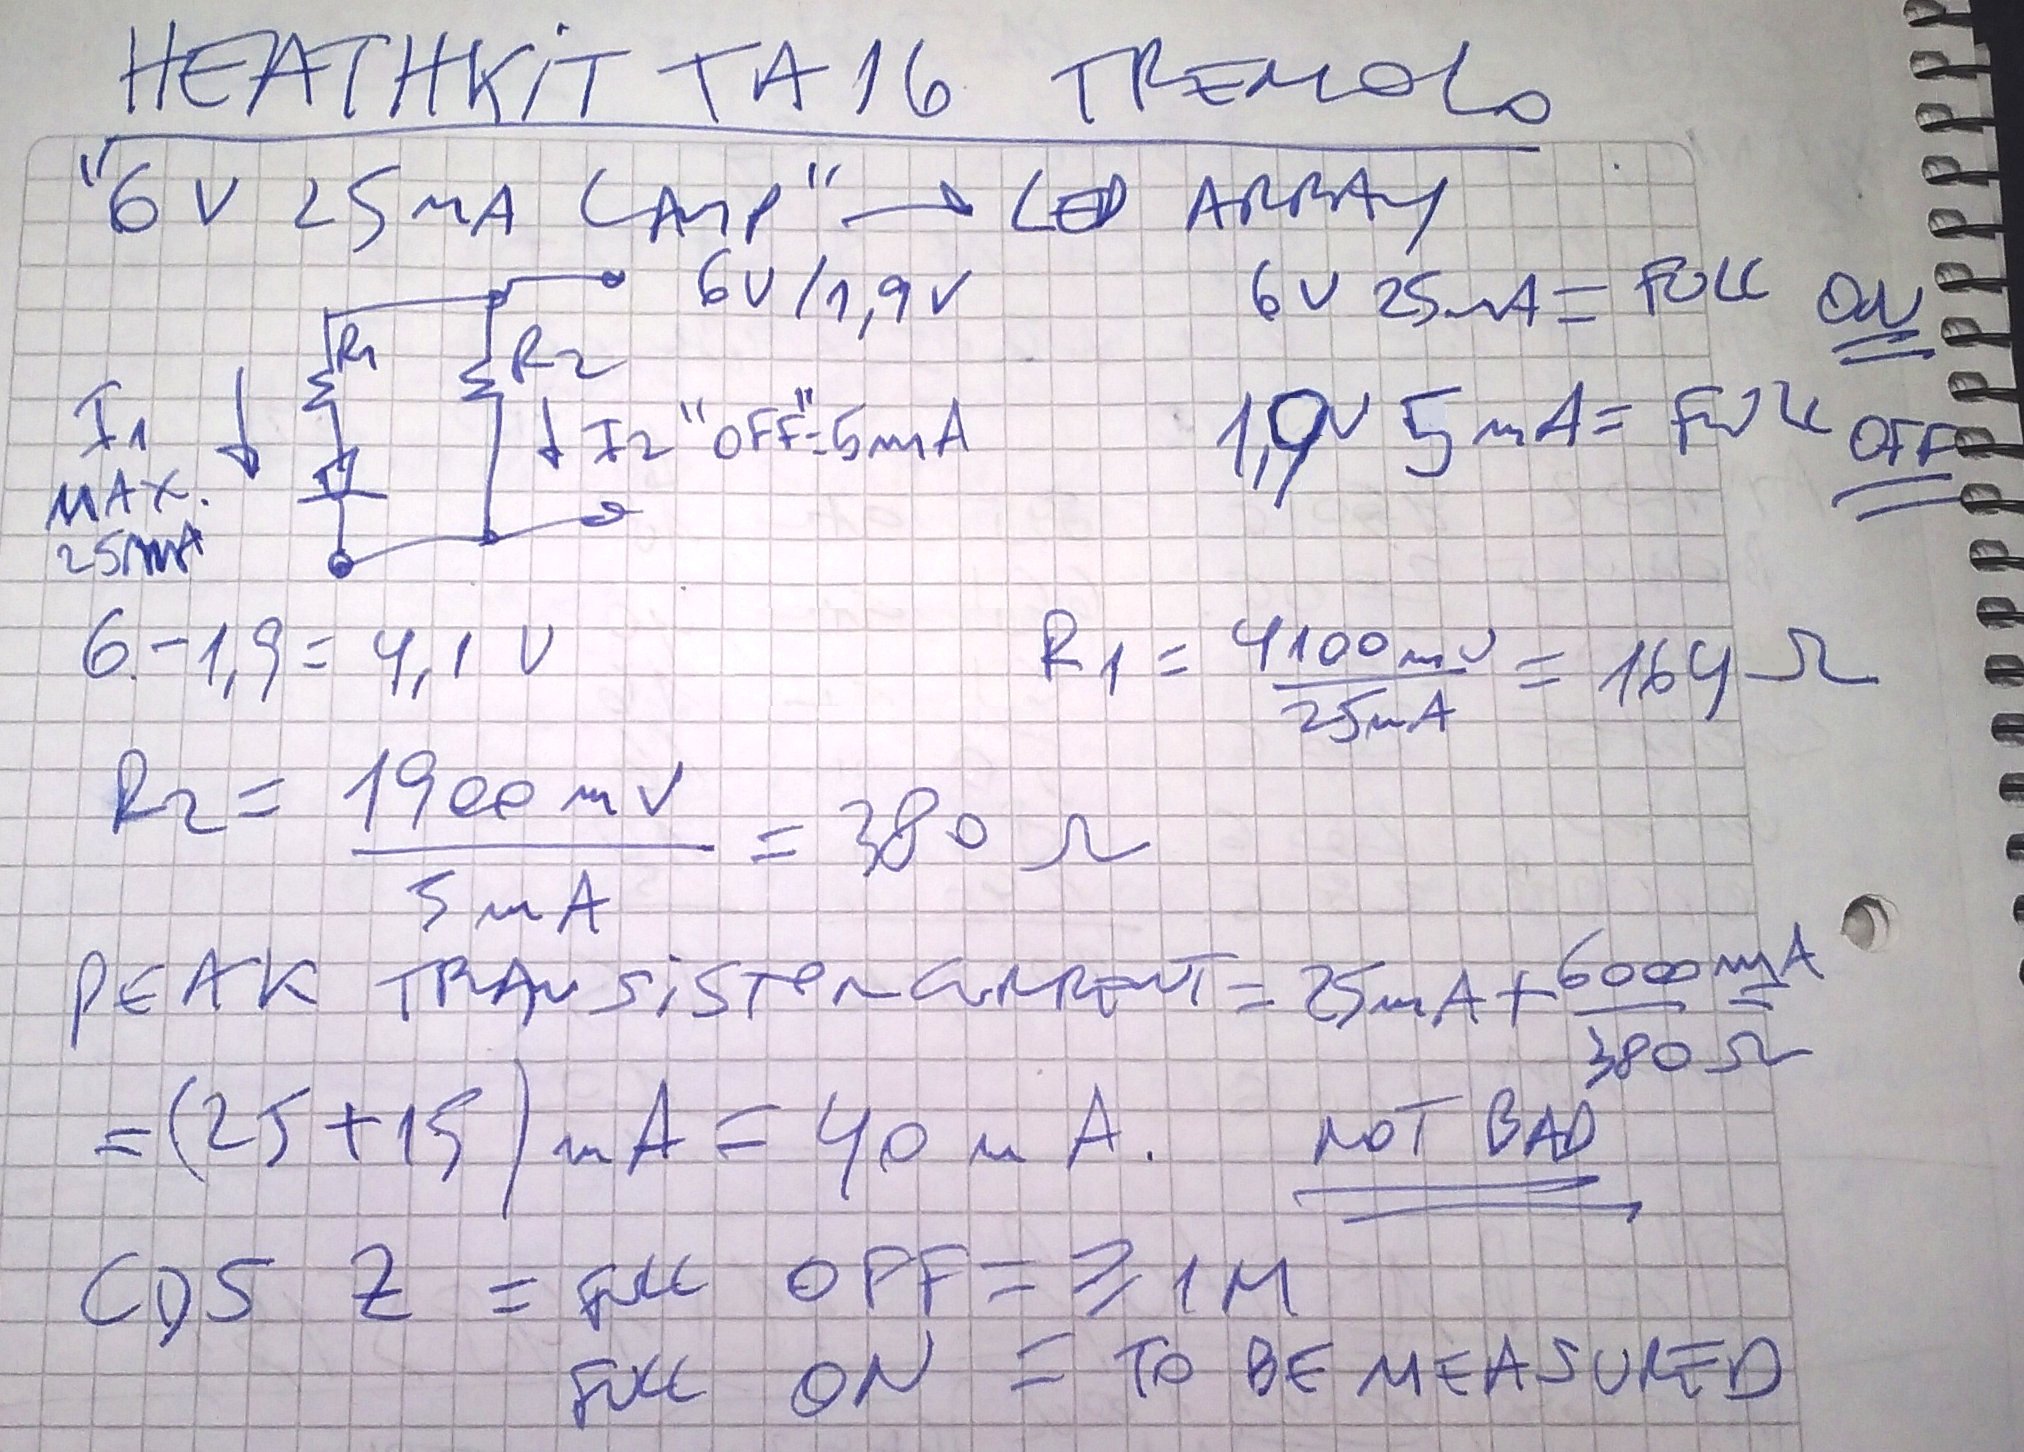 HEATHKiT TA16 TREMOLO
"6V 25mA LAMP" → LED ARRAY
6V/1,9V
6V 25mA = FULL ON
R1
R2
I1 MAX. 25mA
I2 "OFF"=5mA
1,9V 5mA = FULL OFF
6-1,9 = 4,1V
R1 = 4100mV / 25mA = 164Ω
R2 = 1900mV / 5mA = 380Ω
PEAK TRANSiSTOR CURRENT = 25mA + 6000mA / 380Ω =
= (25+15)mA = 40mA. NOT BAD
CDS Z = FULL OFF = ≥1M
FULL ON = TO BE MEASURED